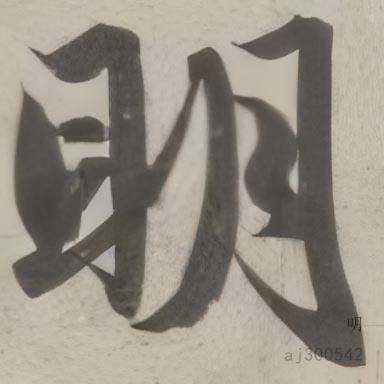 明
明
aj300542